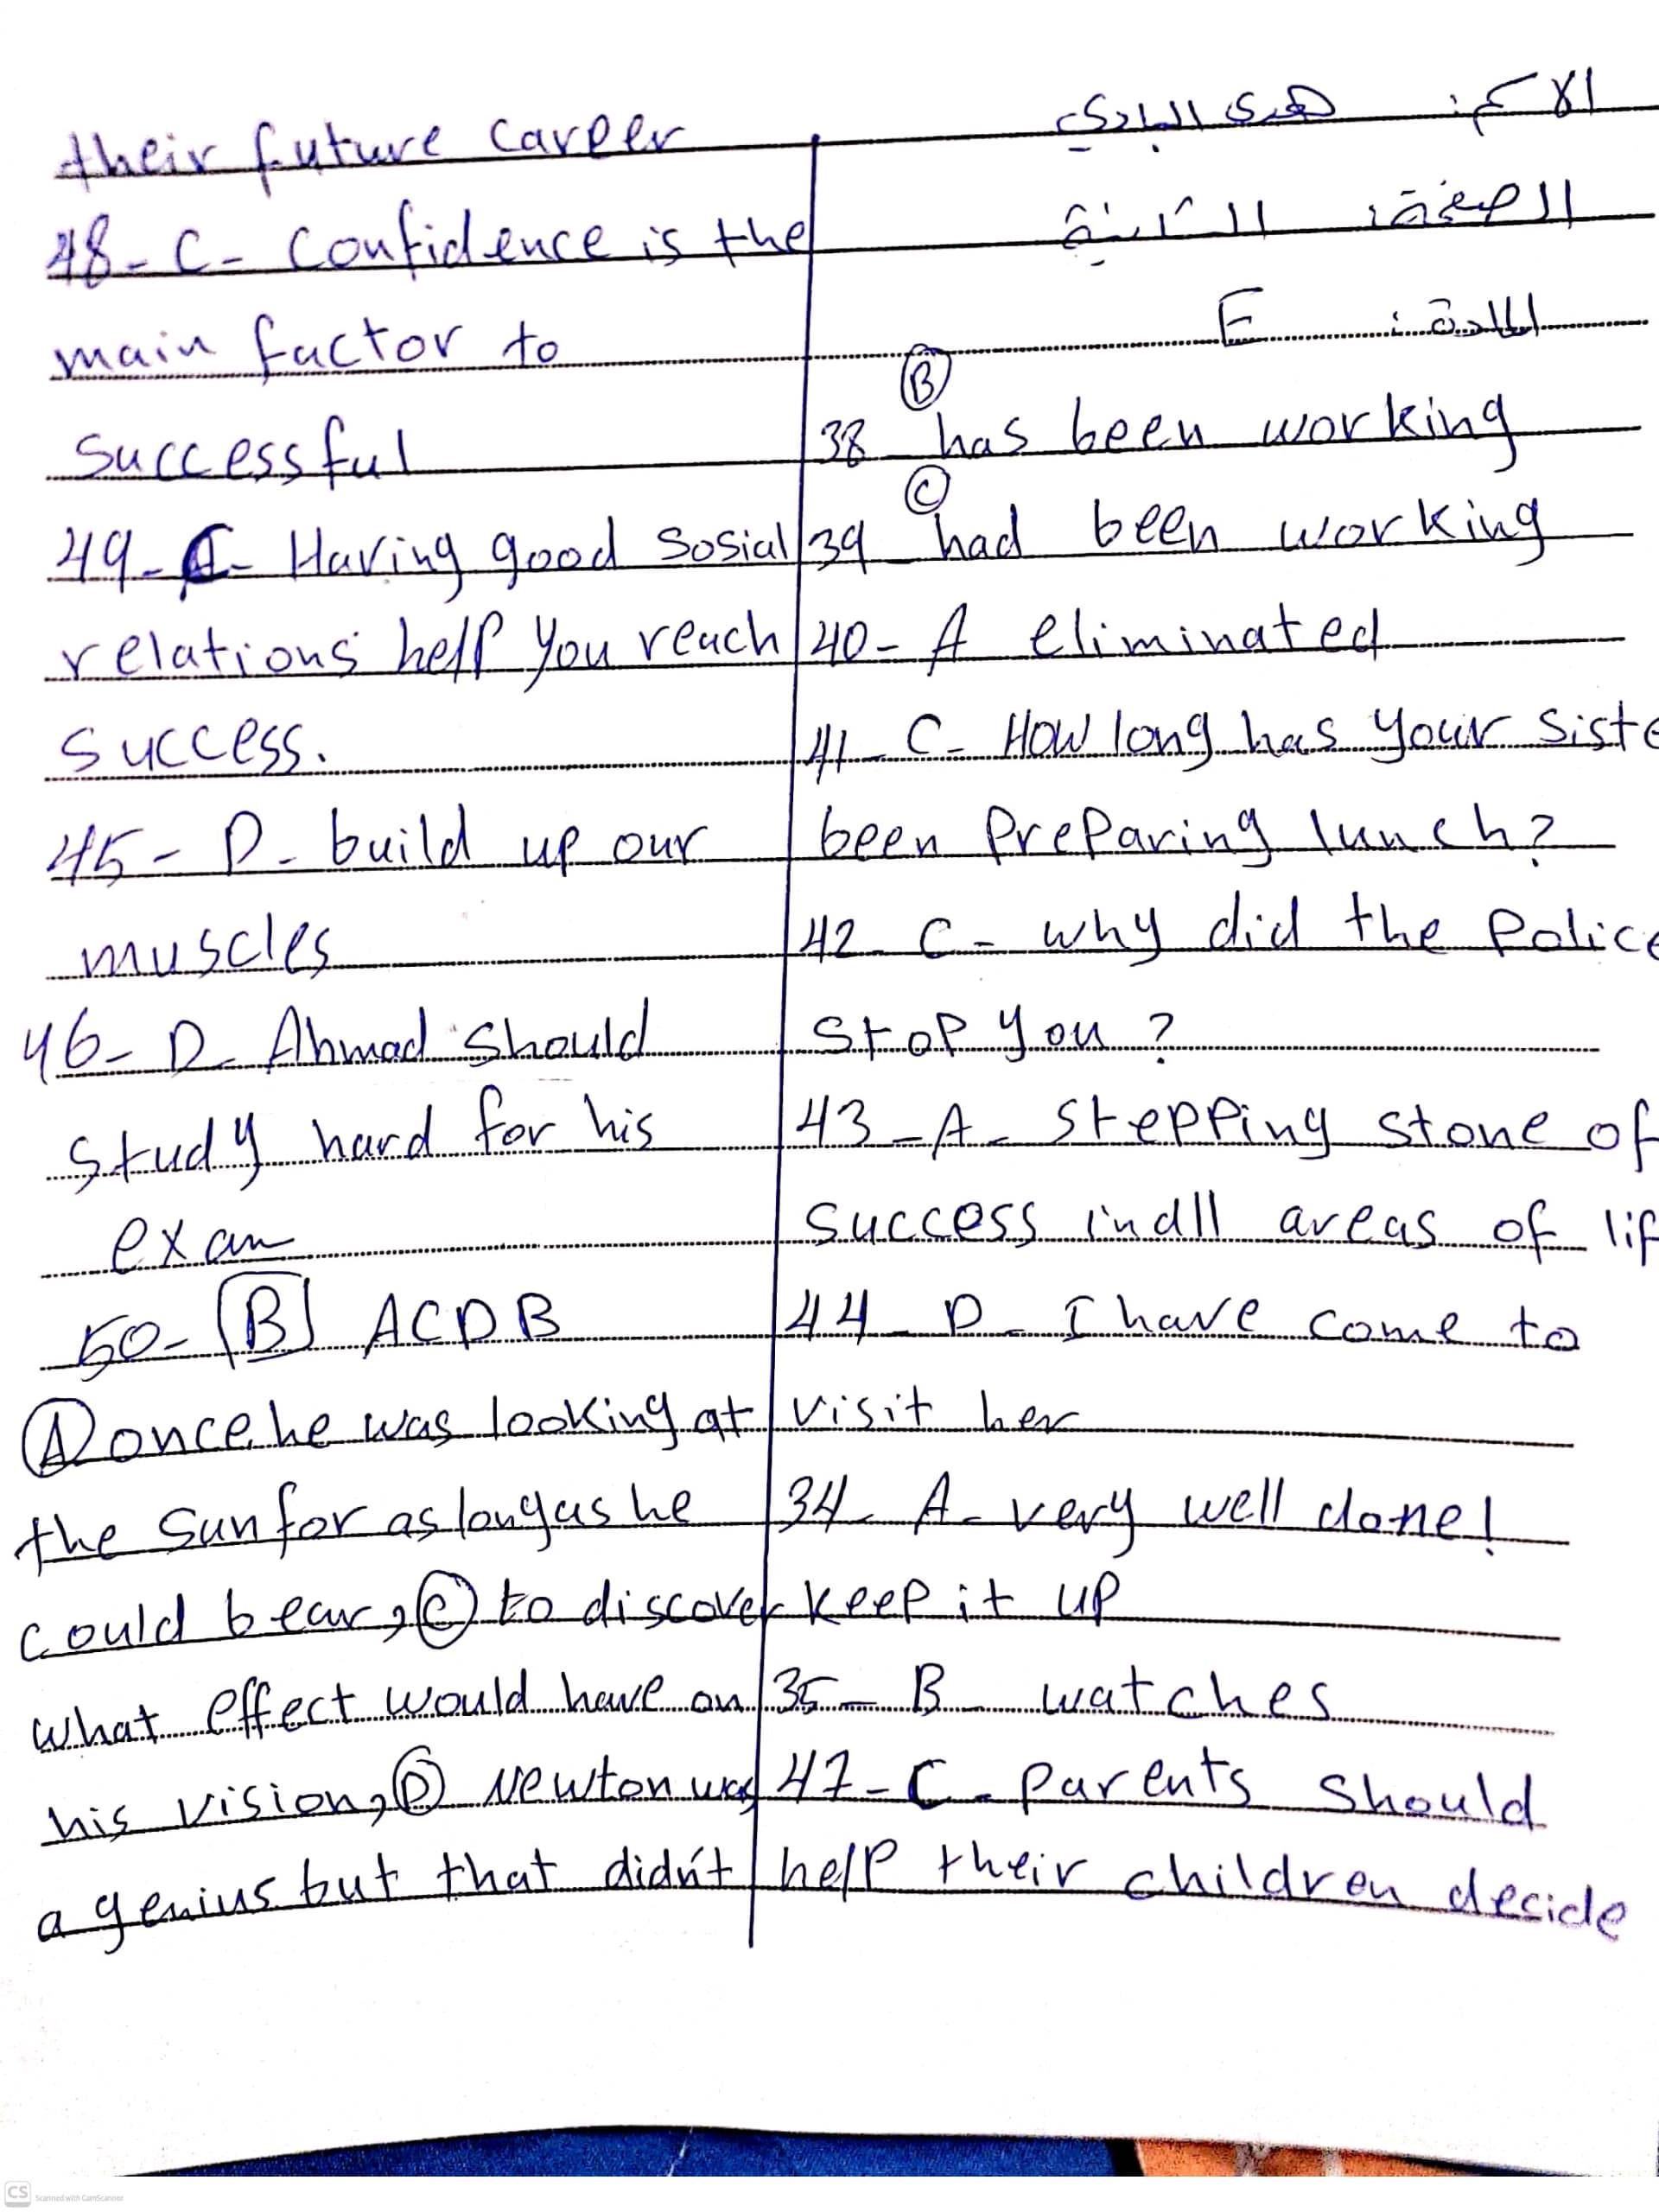 الاسم: هدى البادي
الصفحة: الثانية
المادة: E
38 Ⓑ has been working
39 Ⓒ had been working
40- A eliminated
41- C- How long has your siste
been preparing lunch?
42- C- why did the police
stop you ?
43-A- stepping stone of
success in all areas of lif
44- D- I have come to
visit her
34- A- very well done!
keep it up
35- B- watches
47-C- parents should
help their children decide
their future career
48-C- Confidence is the
main factor to
successful
49-C- Having good sosial
relations help you reach
success.
45- D- build up our
muscles
46- D- Ahmad should
study hard for his
exam
50- B ACDB
Ⓐ once he was looking at
the sun for as long as he
could bear, Ⓒ to discover
what effect would have on
his vision, Ⓓ Newton was
a genius but that didn't
CS Scanned with CamScanner